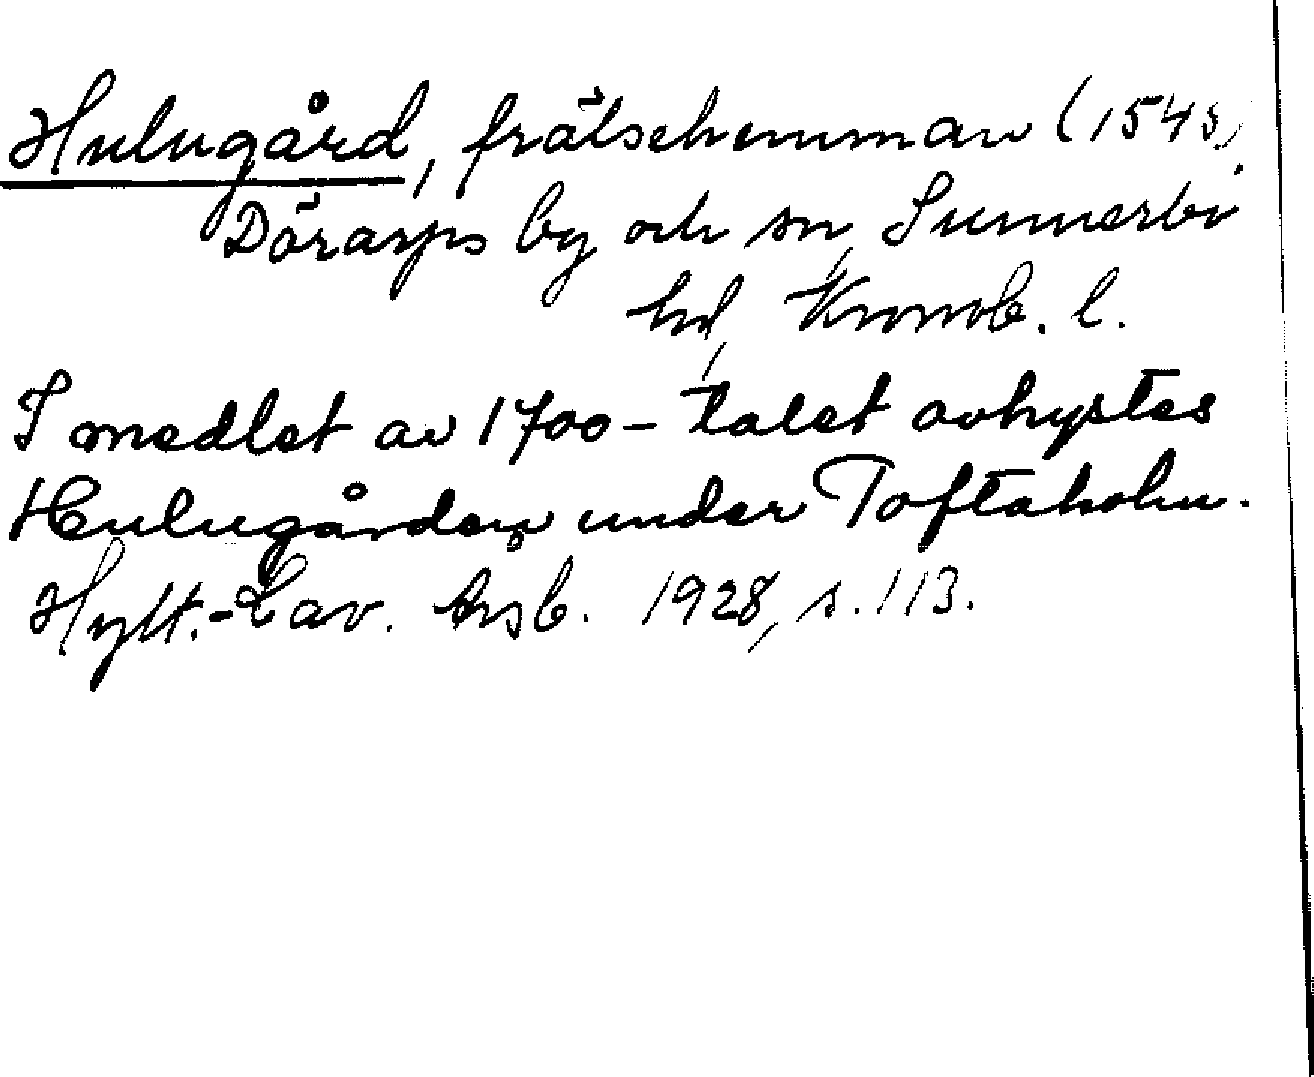 Hulugård, frälsehemman (1545),
Dörarps by och sn, Sunnerbo
hd, Kronob. l.
I medlet av 1700-talet avhystes
Hulugården under Toftaholm.
Hylt.-Cav. årsb. 1928, s. 113.